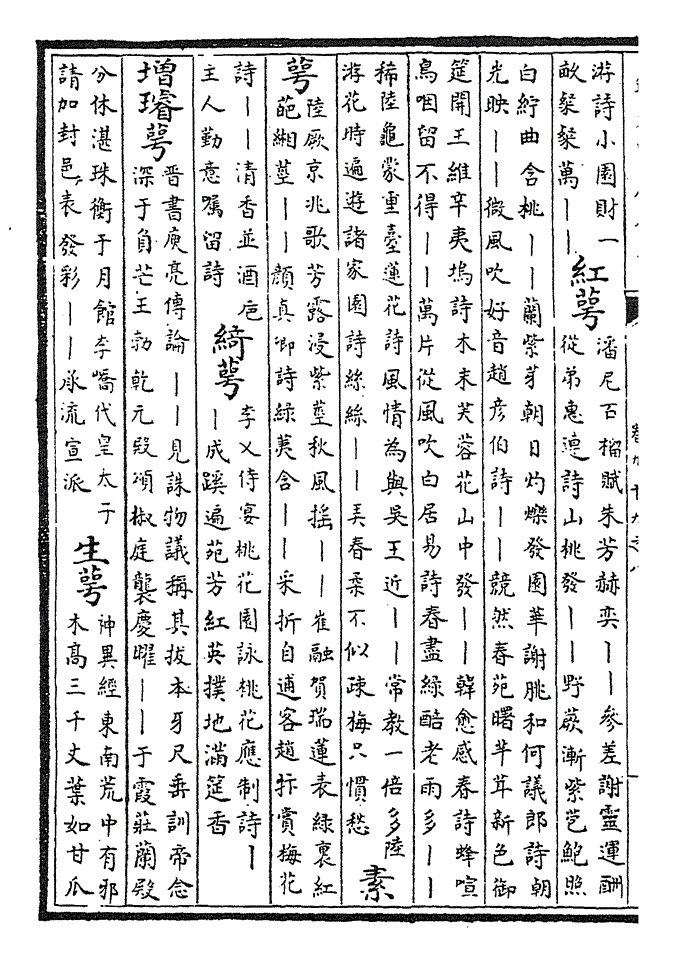 游詩小園財一
畝粲粲萬——
紅萼
潘尼石榴賦朱芳赫奕——參差謝靈運酬
從弟惠連詩山桃發——野蕨漸紫苞鮑照
白紵曲含桃——蘭紫芽朝日灼爍發園華謝朓和何議郎詩朝
光映——微風吹好音趙彦伯詩——競然春苑曙芊茸新色御
筵開王維辛夷塢詩木末芙蓉花山中發——韓愈感春詩蜂喧
鳥咽留不得——萬片從風吹白居易詩春盡綠醅老雨多——
稀陸龜蒙重臺蓮花詩風情為與吳王近——常教一倍多陸
游花時遍遊諸家園詩絲絲——弄春柔不似疎梅只慣愁
素
萼
陸厥京兆歌芳露浸紫莖秋風摇——崔融賀瑞蓮表綠裏紅
葩緗莖——顔真卿詩綠荑含——采折自逋客趙抃賞梅花
詩——清香並酒巵
主人勤意囑留詩
綺萼
李乂侍宴桃花園詠桃花應制詩—
—成蹊遍苑芳紅英撲地滿筵香
增璿萼
晉書庾亮傳論——見誅物議稱其拔本牙尺乘訓帝念
深于負芒王勃乾元殿頌椒庭襲慶曜——于霞莊蘭殿
分休湛珠衡于月館李嶠代皇太子
請加封邑表發彩——承流宣派
生萼
神異經東南荒中有邪
木髙三千丈葉如甘瓜